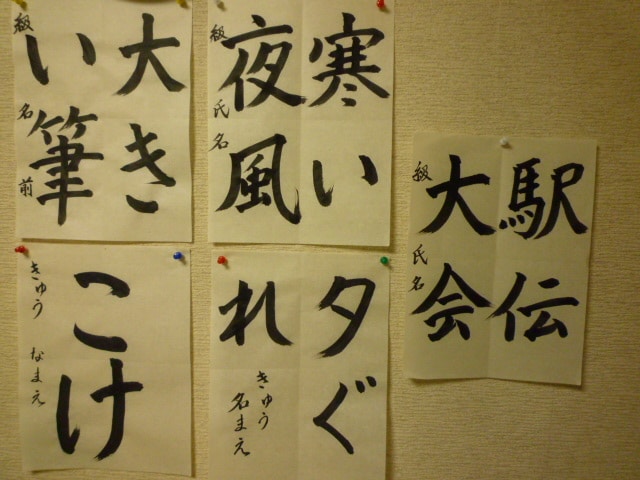 大き
い筆
級 名前
寒い
夜風
級 氏名
駅伝
大会
級 氏名
こけ
きゅう なまえ
夕ぐ
れ
きゅう
名まえ